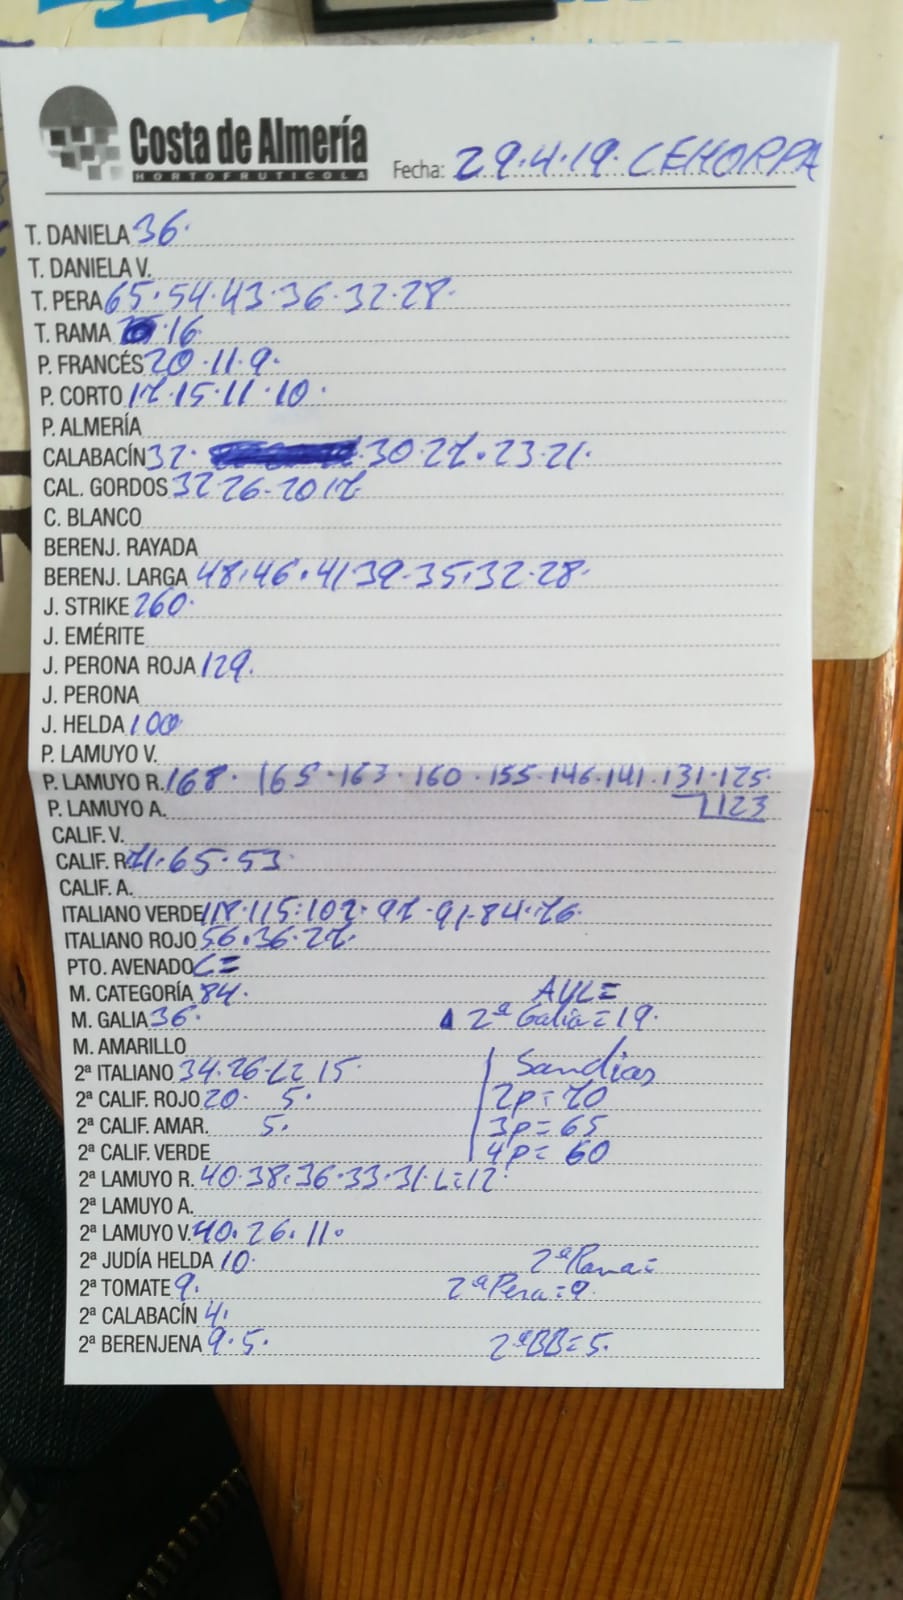 Costa de Almería
HORTOFRUTICOLA
Fecha: 29.4.19. CEHORPA
T. DANIELA 36.
T. DANIELA V.
T. PERA 65.54.43.36.32.28.
T. RAMA 16
P. FRANCÉS 20.11.9.
P. CORTO 17.15.11.10.
P. ALMERÍA
CALABACÍN 32. 30 27.23.21.
CAL. GORDOS 32 26.20 17
C. BLANCO
BERENJ. RAYADA
BERENJ. LARGA 48.46.41 39.35.32.28.
J. STRIKE 260.
J. EMÉRITE
J. PERONA ROJA 129.
J. PERONA
J. HELDA 100
P. LAMUYO V.
P. LAMUYO R. 168. 165.163.160.155.146.141.131.125.
P. LAMUYO A. 123
CALIF. V.
CALIF. R. 71.65.53
CALIF. A.
ITALIANO VERDE 118.115.102.97.91.84.76.
ITALIANO ROJO 56.36.27.
PTO. AVENADO C=
M. CATEGORÍA 84. =
M. GALIA 36. 2ª Galia=19.
M. AMARILLO
2ª ITALIANO 34.26. 15. Sandias
2ª CALIF. ROJO 20. 5. 2p=70
2ª CALIF. AMAR. 5. 3p=65
2ª CALIF. VERDE 4p=60
2ª LAMUYO R. 40.38.36.33.31.L=12.
2ª LAMUYO A.
2ª LAMUYO V. 40.26.11.
2ª JUDÍA HELDA 10. 2ª Rama=
2ª TOMATE 9. 2ª Pera=9.
2ª CALABACÍN 4.
2ª BERENJENA 9.5. 2ªBB=5.